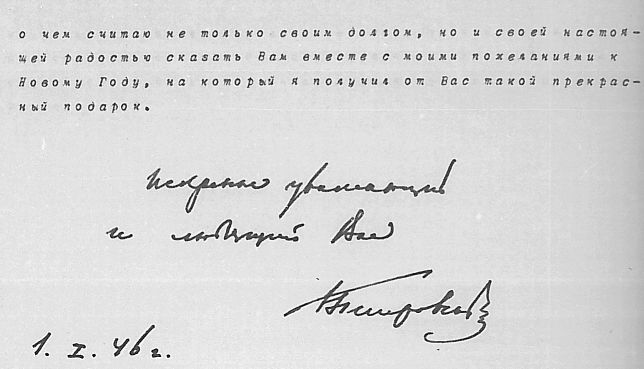 о чем считаю не только своим долгом, но и своей настоя-
щей радостью сказать Вам вместе с моими пожеланиями к
Новому Году, на который я получил от Вас такой прекрас-
ный подарок.
Искренне уважающий
и любящий Вас
1. I. 46 г.